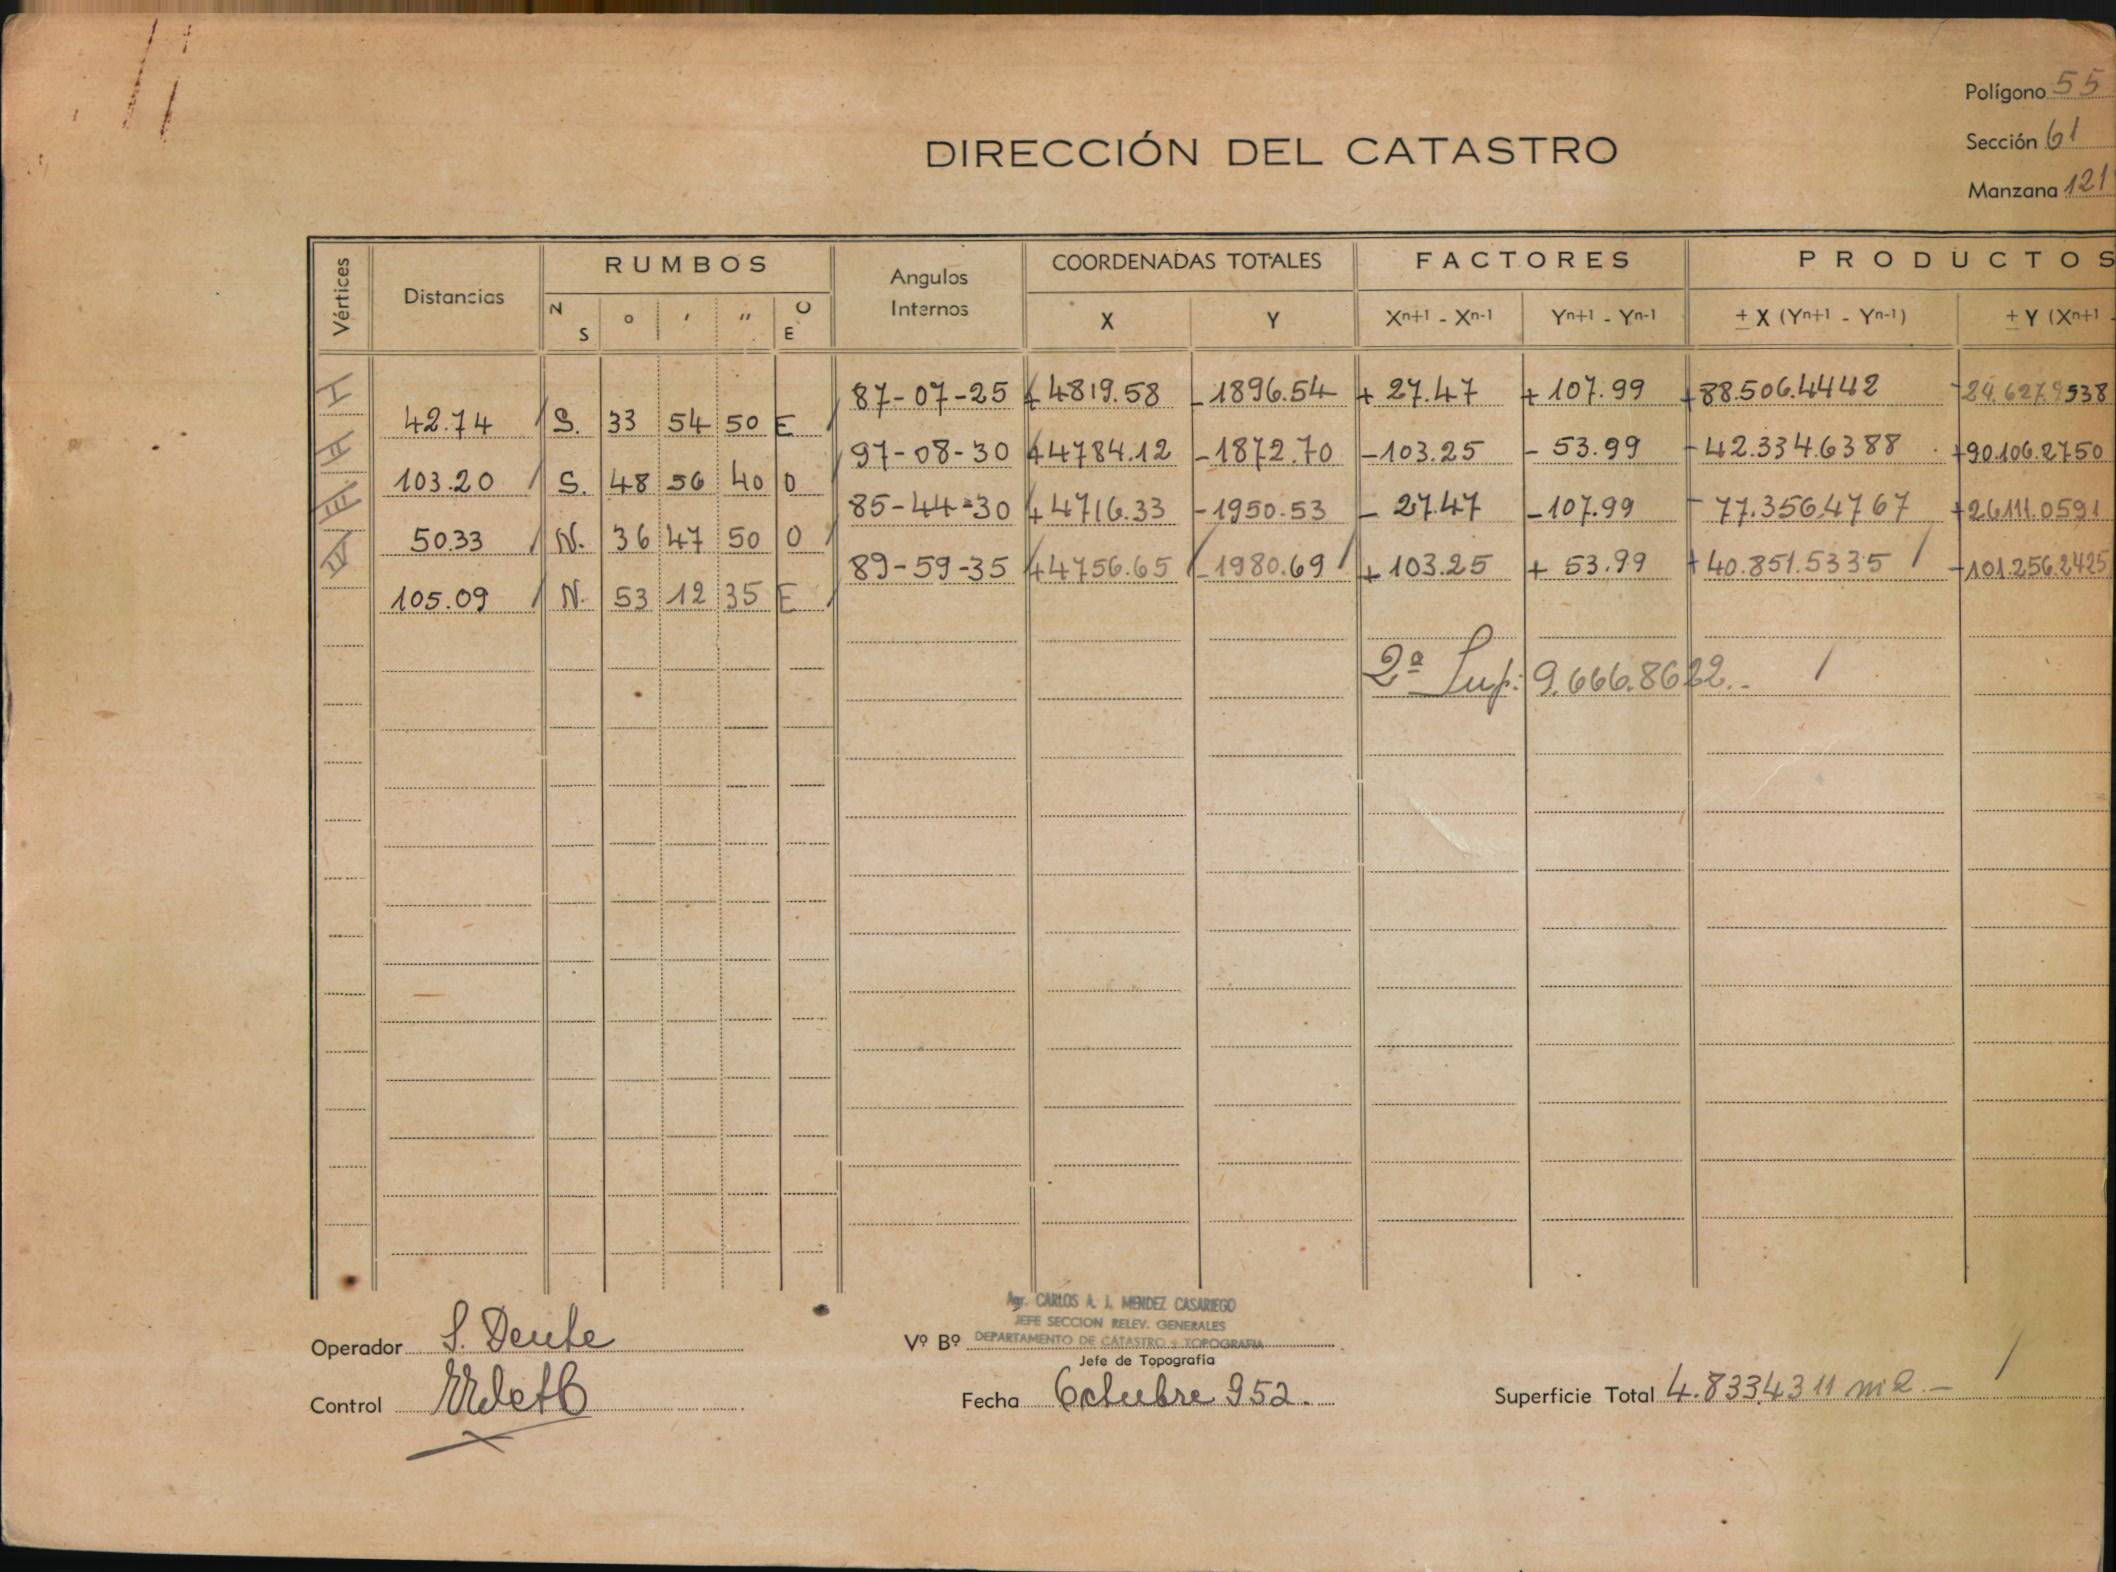 Polígono 55
DIRECCIÓN DEL CATASTRO
Sección 61
Manzana 121
Vértices Distancias RUMBOS Angulos Internos COORDENADAS TOTALES FACTORES PRODUCTOS
N S ° ' " O E X Y Xn+1 - Xn-1 Yn+1 - Yn-1 ± X (Yn+1 - Yn-1) ± Y (Xn+1 -
I 87-07-25 +4819.58 -1896.54 + 27.47 + 107.99 +88.506.4442
42.74 S. 33 54 50 E
II 97-08-30 +4784.12 -1872.70 -103.25 - 53.99 -42.334.6388 +90.106.2750
103.20 S. 48 56 40 O
III 85-44-30 +4716.33 -1950.53 - 27.47 -107.99 - 77.356.4767 +26.111.0591
50.33 N. 36 47 50 O
IV 89-59-35 +4756.65 -1980.69 + 103.25 + 53.99 +40.851.5335 -101.256.2425
105.09 N. 53 12 35 E
2ª Sup: 9.666.8622.-
Agr. CARLOS A. J. MENDEZ CASARIEGO
JEFE SECCION RELEV. GENERALES
DEPARTAMENTO DE CATASTRO y TOPOGRAFIA
Operador S. Dente Vº Bº
Jefe de Topografía
Control Fecha Octubre 952. Superficie Total 4.833.4311 m2.-